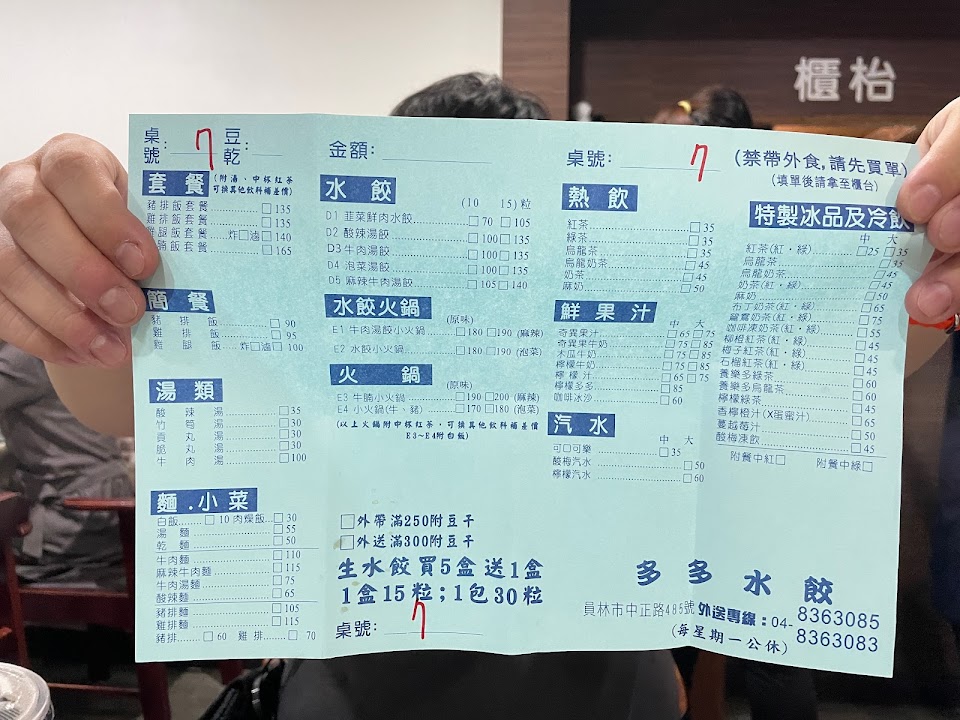 櫃枱
桌號: 7 豆乾:
套餐 (附湯、中杯紅茶 可換其他飲料補差價)
豬排飯套餐 □ 135
雞排飯套餐 □ 135
雞腿飯套餐 炸□滷□ 140
腩飯套餐 □ 165
簡餐
豬排飯 □ 90
雞排飯 □ 95
雞腿飯 炸□滷□ 100
湯類
酸辣湯 □35
竹筍湯 □30
貢丸湯 □30
脆丸湯 □30
牛肉湯 □100
麵.小菜
白飯 □ 10 肉燥飯 □ 30
湯麵 □ 55
乾麵 □ 50
牛肉麵 □110
麻辣牛肉麵 □115
牛肉湯麵 □75
酸辣麵 □65
豬排麵 □105
雞排麵 □115
豬排 □ 60 雞排 □ 70
金額:
水餃
(10 15)粒
D1 韮菜鮮肉水餃 □ 70 □ 105
D2 酸辣湯餃 □100 □ 135
D3 牛肉湯餃 □100 □ 135
D4 泡菜湯餃 □100 □ 135
D5 麻辣牛肉湯餃 □105 □ 140
水餃火鍋 (原味)
E1 牛肉湯餃小火鍋 □180 □190 (麻辣)
E2 水餃小火鍋 □180 □190 (泡菜)
火鍋 (原味)
E3 牛腩小火鍋 □190 □200 (麻辣)
E4 小火鍋(牛、豬) □170 □180 (泡菜)
(以上火鍋附中杯紅茶,可換其他飲料補差價
E3~E4附白飯)
□外帶滿250附豆干
□外送滿300附豆干
生水餃買5盒送1盒
1盒15粒;1包30粒
桌號: 7
桌號: 7
熱飲
紅茶 □35
綠茶 □35
烏龍茶 □35
烏龍奶茶 □45
奶茶 □45
麻奶 □50
鮮果汁
中 大
奇異果汁 □65 □75
奇異果牛奶 □75 □85
木瓜牛奶 □75 □85
檸檬牛奶 □75 □85
檸檬汁 □65 □75
檸檬多多 □85
咖啡冰沙 □60
汽水
中 大
可□可樂 □35
酸梅汽水 □50
檸檬汽水 □60
(禁帶外食,請先買單)
(填單後請拿至櫃台)
特製冰品及冷飲
中 大
紅茶(紅·綠) □25 □35
烏龍茶 □35
烏龍奶茶 □45
奶茶(紅·綠) □45
麻奶 □50
布丁奶茶(紅·綠) □65
鴛鴦奶茶(紅·綠) □75
咖啡凍奶茶(紅·綠) □55
柳橙紅茶(紅·綠) □45
梅子紅茶(紅·綠) □45
石榴紅茶(紅·綠) □45
養樂多綠茶 □60
養樂多烏龍茶 □60
檸檬綠茶 □45
香檸橙汁(X蛋蜜汁) □45
蔓越莓汁 □50
酸梅凍飲 □45
附餐中紅□ 附餐中綠□
多多水餃
員林市中正路485號 外送專線:04- 8363085
(每星期一公休) 8363083